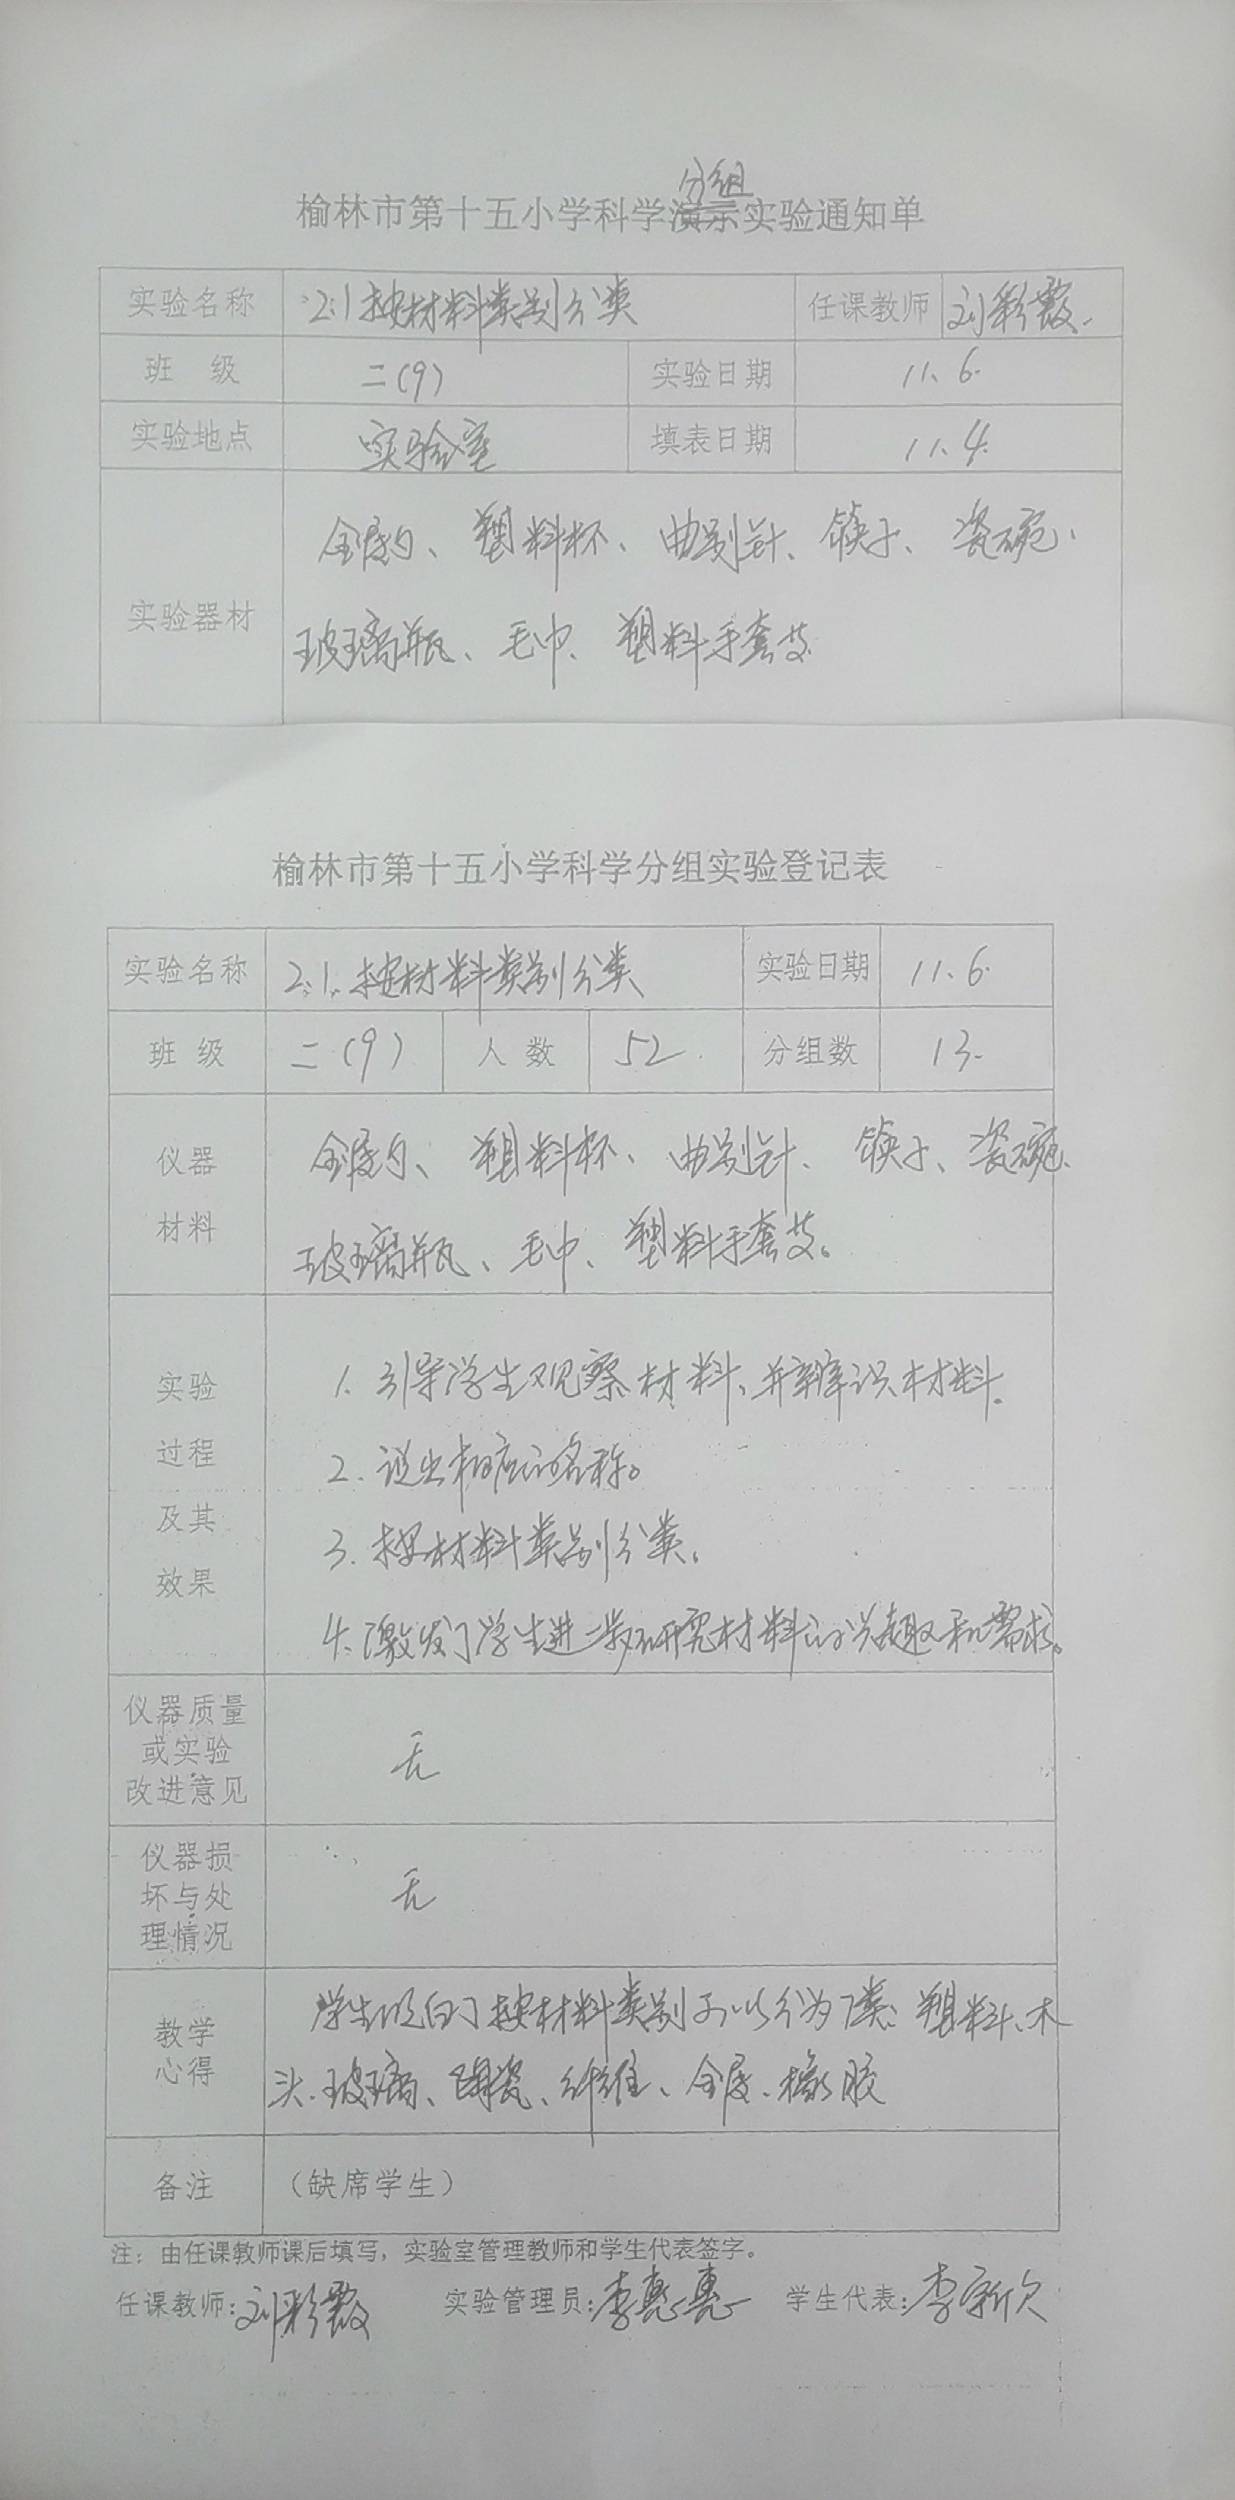 分组
榆林市第十五小学科学演示实验通知单
实验名称 2.1按材料类别分类 任课教师 刘彩霞
班 级 二(9) 实验日期 11.6.
实验地点 实验室 填表日期 11.4.
实验器材 金属勺、塑料杯、曲别针、筷子、瓷碗、
玻璃瓶、毛巾、塑料手套等
榆林市第十五小学科学分组实验登记表
实验名称 2.1.按材料类别分类 实验日期 11.6.
班 级 二(9) 人 数 52 分组数 13.
仪器 金属勺、塑料杯、曲别针、筷子、瓷碗、
材料 玻璃瓶、毛巾、塑料手套等。
实验 1.引导学生观察材料,并辨识材料.
过程 2.说出相应的名称。
及其 3.按材料类别分类。
效果 4.激发了学生进一步研究材料的兴趣和需求。
仪器质量
或实验 无
改进意见
仪器损
坏与处 无
理情况
教学 学生明白了按材料类别可以分为7类:塑料、木
心得 头、玻璃、陶瓷、纤维、金属、橡胶
备注 (缺席学生)
注:由任课教师课后填写,实验室管理教师和学生代表签字。
任课教师:刘彩霞 实验管理员:李惠惠 学生代表:李新欣